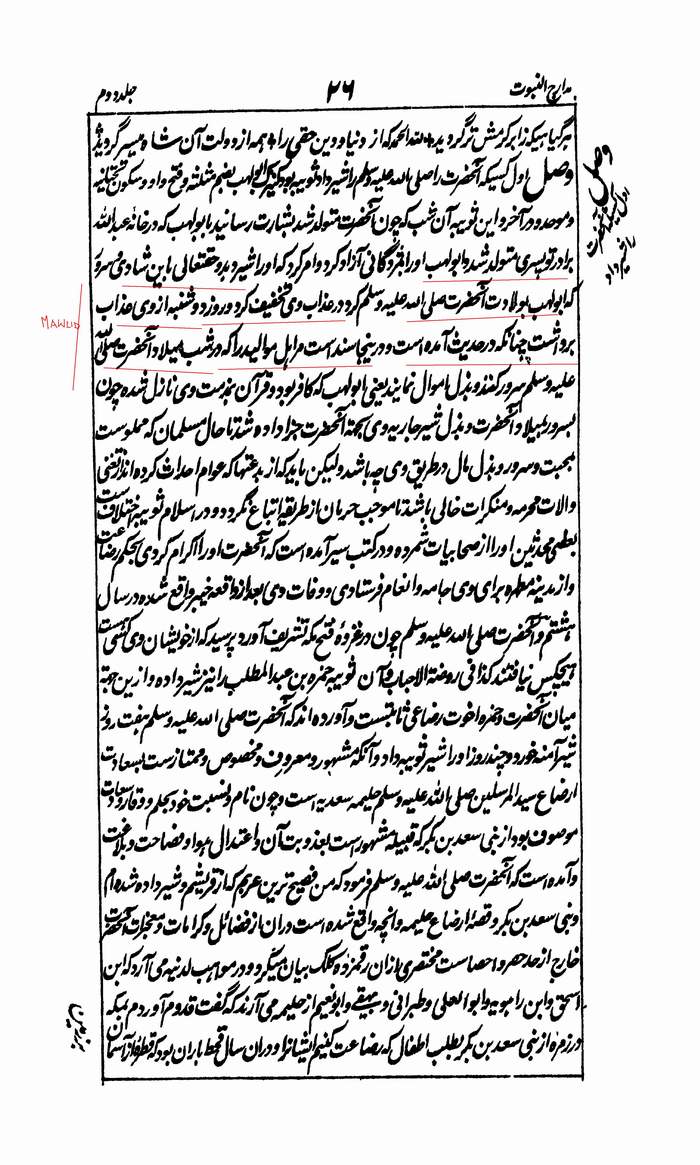 مدارج النبوت
۲۶
جلد دوم
هر گیاهیکه زابر کرمش تر گردیده لله الحمد که از دنیا و دین حقی را همه از دولت آن شاه میسر گردیده
وصل اول کسیکه آنحضرت را صلی الله علیه وسلم را شیر داد ثویبه بود کنیزک ابولهب بضم مثلثه و فتح واو و سکون تحتانیه
و موحده در آخر و این ثویبه آن شب که چون آنحضرت متولد شد بشارت رسانید بابولهب که در خانه عبدالله
برادر تو پسری متولد شد و ابولهب او را بمژدگانی آزاد کرد و امر کرد که او را شیر دهد و حقتعالی باین شادی و سرور
که ابولهب بولادت آنحضرت صلی الله علیه وسلم کرد در عذاب وی تخفیف کرد و روز دوشنبه از وی عذاب
MAWLID
برداشت چنانکه در حدیث آمده است و درینجا سند است مر اهل موالید را که در شب میلاد آنحضرت صلی الله
علیه وسلم سرور کنند و بذل اموال نمایند یعنی ابولهب که کافر بود و قرآن بمذمت وی نازل شده چون
بسرور بمیلاد آنحضرت و بذل شیر جاریه وی بجهة آنحضرت جزا داده شد تا حال مسلمان که مملوست
بمحبت و سرور و بذل مال در طریق وی چه باشد ولیکن باید که از بدعتها که عوام احداث کرده اند از تغنی
و آلات محرمه و منکرات خالی باشد تا موجب حرمان از طریقه اتباع نگردد و در اسلام ثویبه اختلاف است
بعضی محدثین او را از صحابیات شمرده و در کتب سیر آمده است که آنحضرت او را اکرام کردی بحکم رضاعت
و از مدینه مطهره برای وی جامه و انعام فرستادی و وفات وی بعد از واقعه خیبر واقع شده در سال
هشتم و آنحضرت صلی الله علیه وسلم چون در غزوه فتح مکه تشریف آورد پرسید که از خویشان وی کسی هست
هیچکس نیافتند کذا فی روضة الاحباب و آن ثویبه حمزه بن عبدالمطلب را نیز شیر داده و ازین جهة
میان آنحضرت و حمزه اخوت رضاعی ثابتست و آورده اند که آنحضرت صلی الله علیه وسلم هفت روز
شیر آمنه خورد و چند روز او را شیر ثویبه داد و آنکه مشهور و معروف و مخصوص و ممتاز ست بسعادت
ارضاع سید المرسلین صلی الله علیه وسلم حلیمه سعدیه است و چون نام و نسبت خود بحلم و وقار و سعادت
موصوف بود از بنی سعد بن بکر که قبیله مشهور است بعذوبت آن و اعتدال هوا و فصاحت و بلاغت
و آمده است که آنحضرت صلی الله علیه وسلم فرمود که من فصیح ترین عربم که از قریشم و شیر داده شده ام
و بنی سعد بن بکر و قصهٔ ارضاع حلیمه و آنچه واقع شده است دران از فضائل و کرامات و معجزات آنحضرت
خارج از حد حصر و احصاست مختصری ازان رقمزده کلک بیان میگردد و در مواهب لدنیه می آرد که ابن
اسحق و ابن راهویه و ابو یعلی و طبرانی و بیهقی و ابو نعیم از حلیمه می آرند که گفت قدوم آوردم بمکه
در زمره از بنی سعد بن بکر بطلب اطفال که رضاعت کنیم ایشانرا و دران سال قحط باران بود که قطره از آسمان
وصل
اول کسیکه آنحضرت
را شیر داد